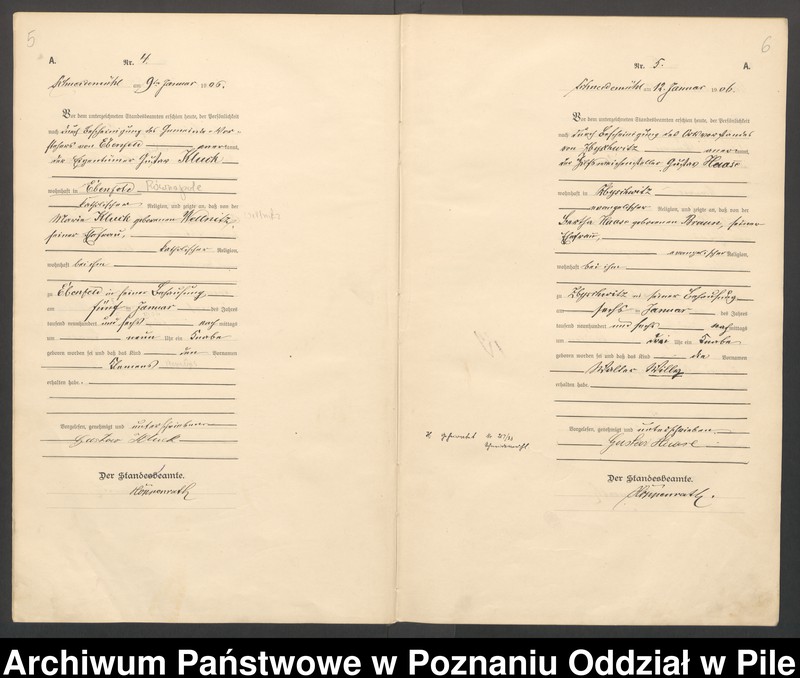 5
A. Nr. 4.
Schneidemühl am 9ten Januar 1906.
Vor dem unterzeichneten Standesbeamten erschien heute, der Persönlichkeit
nach durch Bescheinigung des Gemeinde-Vor-
stehers von Ebenfeld anerkannt,
der Eigentümer Gustav Kluck
wohnhaft in Ebenfeld
katholischer Religion, und zeigte an, daß von der
Maria Kluck geborenen Wellnitz,
seiner Ehefrau,
katholischer Religion,
wohnhaft bei ihm
zu Ebenfeld in seiner Behausung
am fünften Januar des Jahres
tausend neunhundert und sechs nachmittags
um neun Uhr ein Knabe
geboren worden sei und daß das Kind den Vornamen
Clemens
erhalten habe.
Vorgelesen, genehmigt und unterschrieben
Gustav Kluck
Der Standesbeamte.
6
Nr. 5. A.
Schneidemühl am 12. Januar 1906.
Vor dem unterzeichneten Standesbeamten erschien heute, der Persönlichkeit
nach durch Bescheinigung des Ortsvorstandes
von anerkannt,
der Hilfsweichensteller Gustav Haase
wohnhaft in
evangelischer Religion, und zeigte an, daß von der
Bertha Haase geborenen Braun, seiner
Ehefrau,
evangelischer Religion,
wohnhaft bei ihm
zu in seiner Behausung
am sechsten Januar des Jahres
tausend neunhundert und sechs nachmittags
um drei Uhr ein Knabe
geboren worden sei und daß das Kind die Vornamen
Walter Willy
erhalten habe.
Vorgelesen, genehmigt und unterschrieben
Gustav Haase
Der Standesbeamte.
Archiwum Państwowe w Poznaniu Oddział w Pile